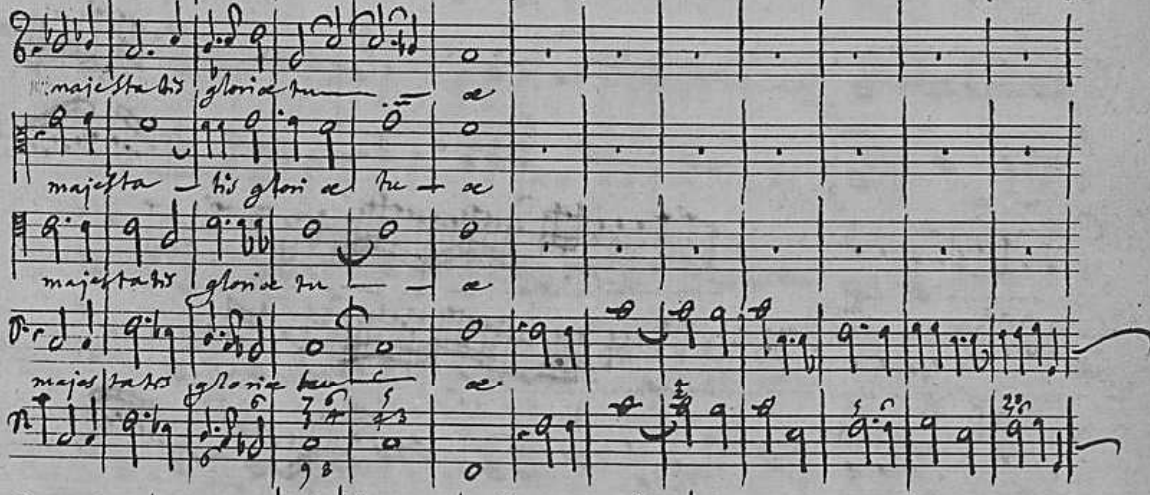 majestatis gloriæ tu — — æ
majesta – tis glori æ tu – æ
majestatis gloriæ tu — — æ
majestatis gloriæ tu — æ